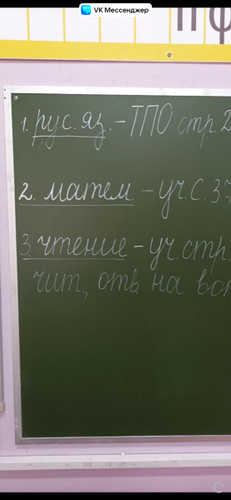 VK Мессенджер
1. рус. яз. – ТПО стр. 2
2. матем – уч. С. 37
3. чтение – уч. стр.
чит, отв на воп